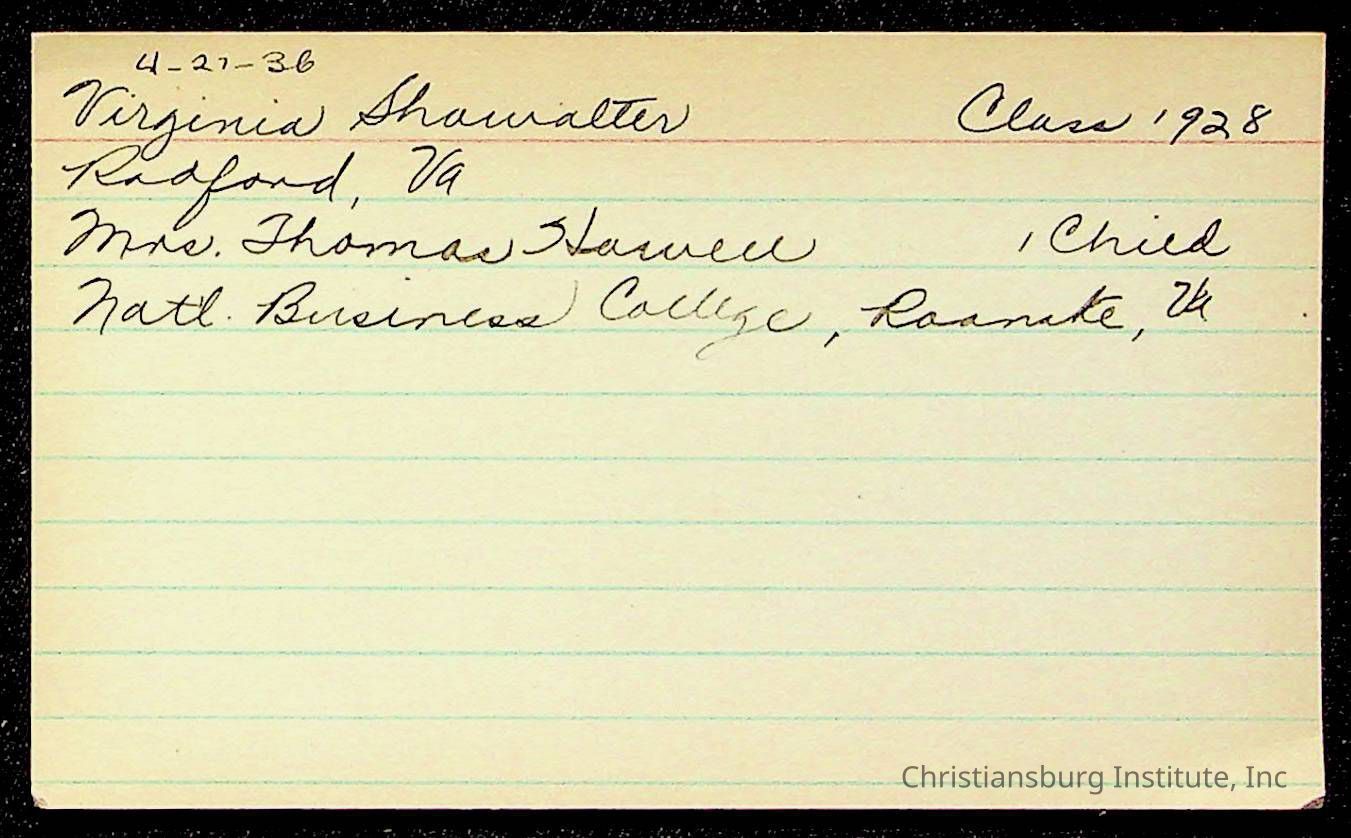 4-27-36
Virginia Showalter Class 1928
Radford, Va
Mrs. Thomas Howell 1 Child
Natl. Business College, Roanoke, Va
Christiansburg Institute, Inc